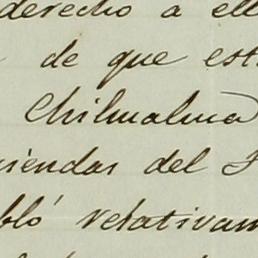 derecho a ell
de que est
Chihualma
iendas del
bló relativam